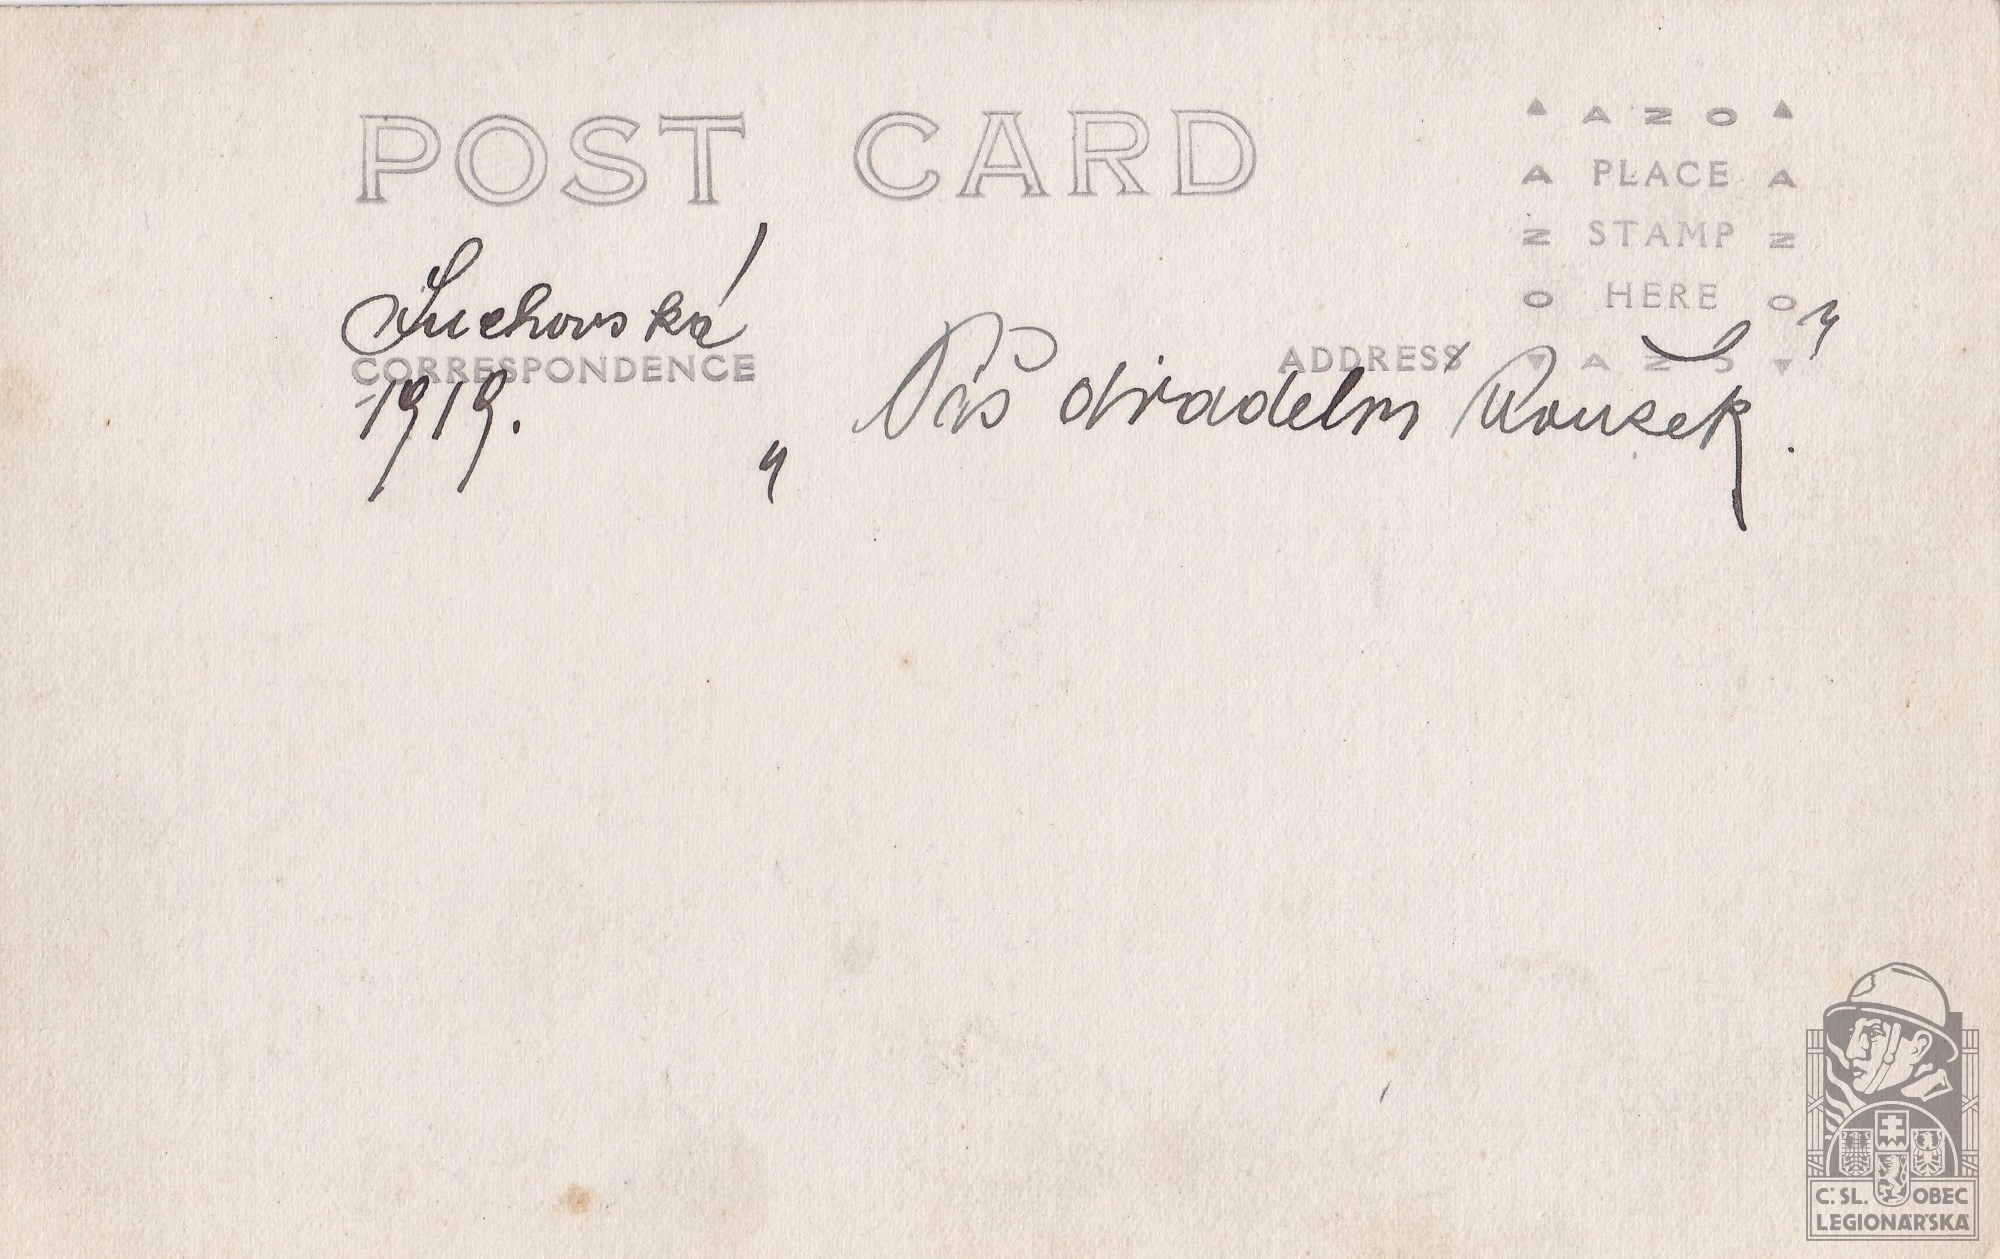 POST CARD
AZO
A PLACE A
Z STAMP Z
O HERE O
AZO
Suchovská
CORRESPONDENCE
1919.
ADDRESS
„Náš divadelní Roušek."
C.SL. OBEC
LEGIONÁŘSKÁ